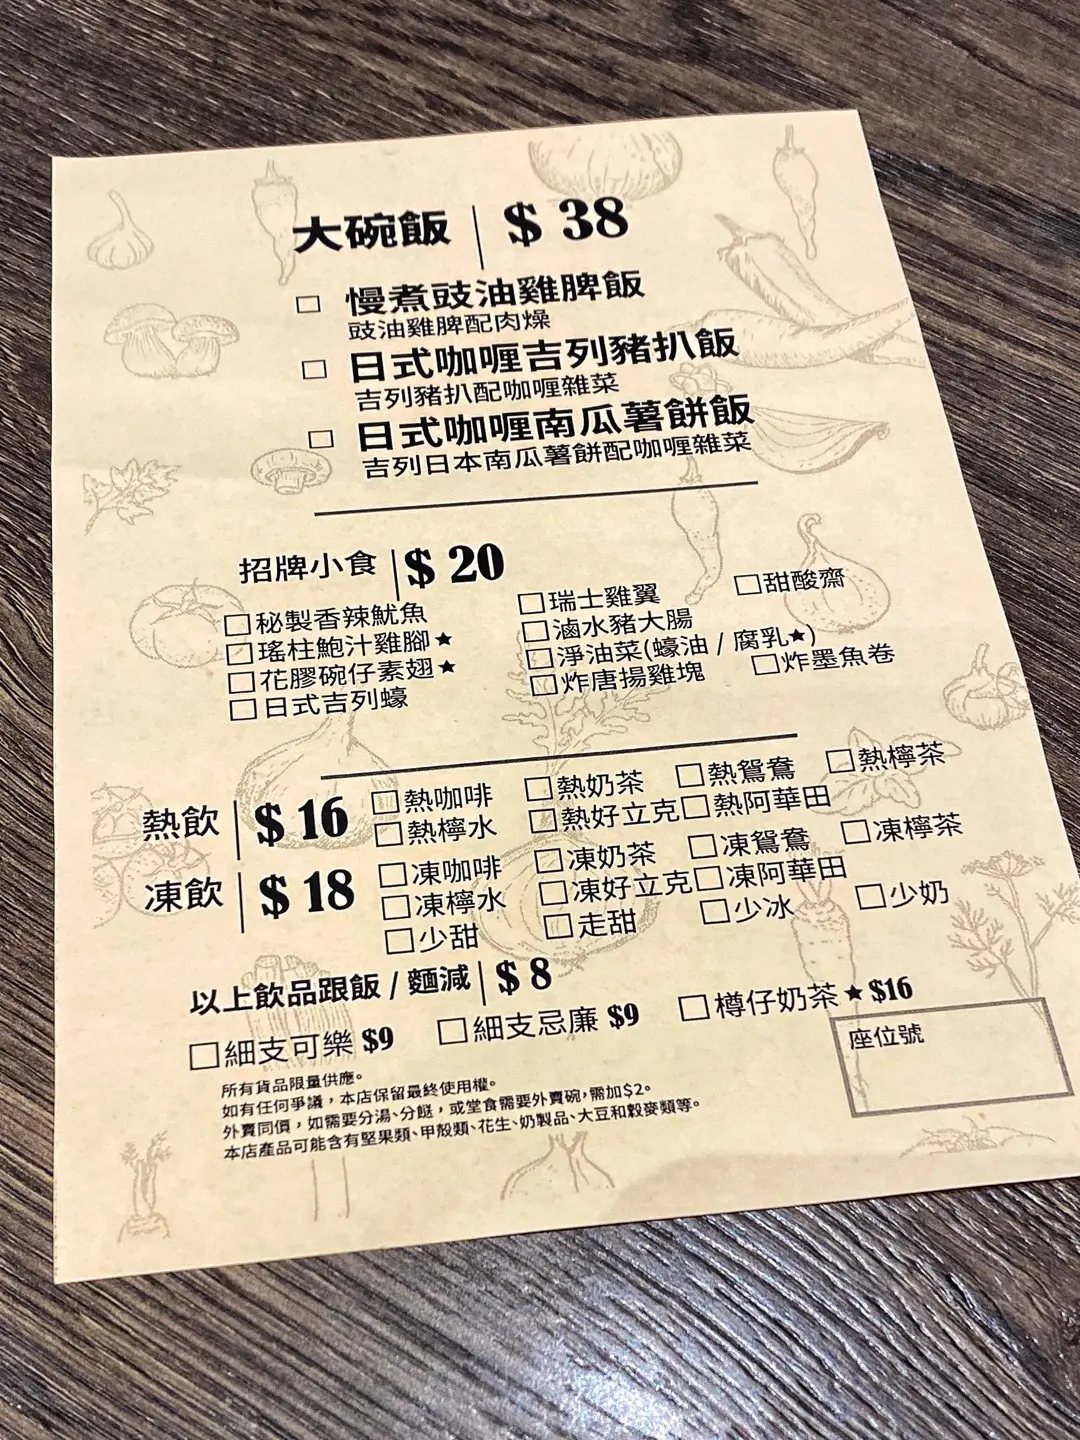 大碗飯 | $ 38
□ 慢煮豉油雞髀飯
豉油雞髀配肉燥
□ 日式咖喱吉列豬扒飯
吉列豬扒配咖喱雜菜
□ 日式咖喱南瓜薯餅飯
吉列日本南瓜薯餅配咖喱雜菜
招牌小食 | $ 20
□秘製香辣魷魚 □瑞士雞翼 □甜酸齋
□瑤柱鮑汁雞腳★ □滷水豬大腸
□花膠碗仔素翅★ □淨油菜(蠔油 / 腐乳★)
□日式吉列蠔 □炸唐揚雞塊 □炸墨魚卷
熱飲 | $ 16 □熱咖啡 □熱奶茶 □熱鴛鴦 □熱檸茶
□熱檸水 □熱好立克 □熱阿華田
凍飲 | $ 18 □凍咖啡 □凍奶茶 □凍鴛鴦 □凍檸茶
□凍檸水 □凍好立克 □凍阿華田
□少甜 □走甜 □少冰 □少奶
以上飲品跟飯 / 麵減 | $ 8
□細支可樂 $9 □細支忌廉 $9 □樽仔奶茶★ $16
座位號
所有貨品限量供應。
如有任何爭議，本店保留最終使用權。
外賣同價，如需要分湯、分餸，或堂食需要外賣碗，需加$2。
本店產品可能含有堅果類、甲殼類、花生、奶製品、大豆和穀麥類等。